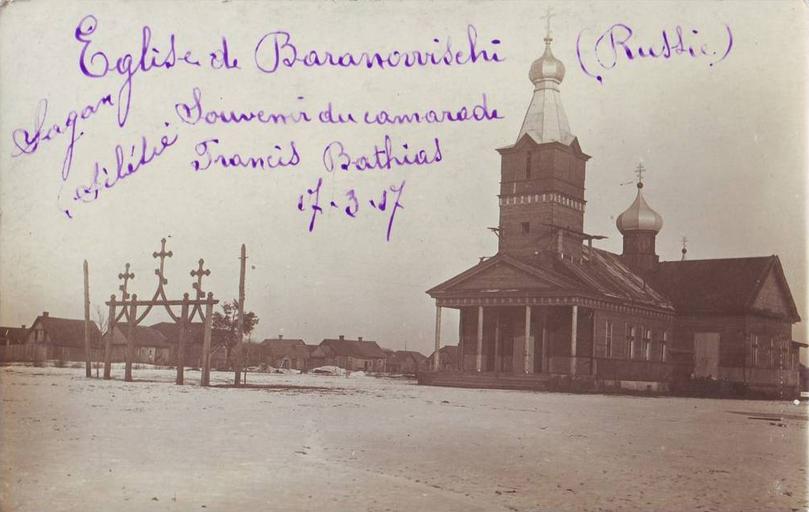 Eglise de Baranowischi (Russie)
Souvenir du camarade
Francis Bathias
17-3-17
Sagan
(Silésie